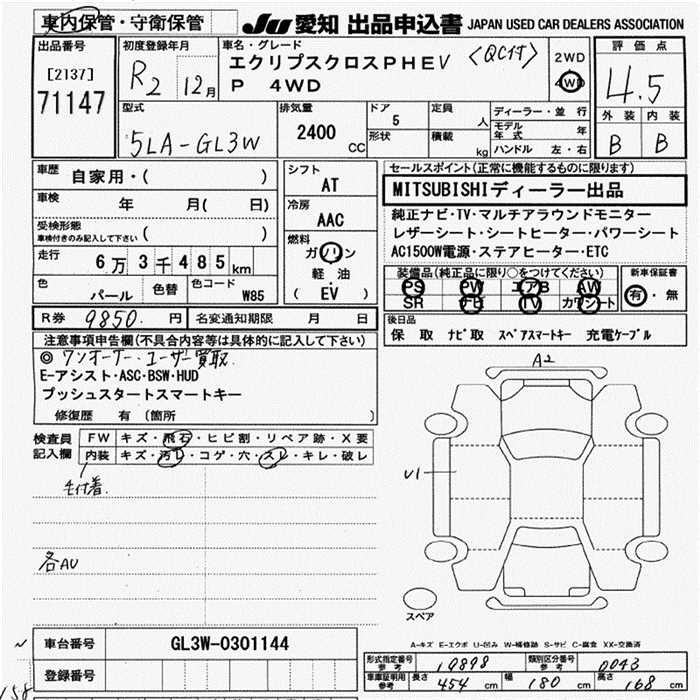 車内保管・守衛保管
JU 愛知 出品申込書 JAPAN USED CAR DEALERS ASSOCIATION
出品番号
[2137]
71147
初度登録年月
R2 12月
車名・グレード
エクリプスクロスPHEV <QC付>
P 4WD
2WD
4WD
評価点
4.5
外装 内装
B B
型式
5LA-GL3W
排気量
2400
CC
ドア
5
形状
定員
人
積載
kg
ディーラー・並行
モデル年式 年
ハンドル 左・右
車歴
自家用・( )
車検 年 月( 日)
受検形態
車検付きのみ記入して下さい ( )
走行
6万3千485km
色
パール
色替
色コード
W85
シフト
AT
冷房
AAC
燃料
ガソリン
・
軽油
・
( EV )
セールスポイント(正常に機能するものに限ります)
MITSUBISHIディーラー出品
純正ナビ・TV・マルチアラウンドモニター
レザーシート・シートヒーター・パワーシート
AC1500W電源・ステアヒーター・ETC
装備品(純正品に限り○をつけてください)
PS PW エアB AW
SR ナビ TV カワシート
新車保証書
有・無
R券 9850.円
名変通知期限 月 日
後日品
保 取 ナビ取 スペアスマートキー 充電ケーブル
注意事項申告欄(不具合内容等は具体的に記入して下さい)
◎ワンオーナー、ユーザー買取
E-アシスト・ASC・BSW・HUD
プッシュスタートスマートキー
修復歴 有 (箇所 )
検査員
記入欄
FW キズ・飛石・ヒビ割・リペア跡・X要
内装 キズ・汚レ・コゲ・穴・スレ・キレ・破レ
毛付着.
各AU
A2
U1
スペア
A-キズ E-エクボ U-凹み W-補修跡 S-サビ C-腐食 XX-交換済
車台番号 GL3W-0301144
登録番号
形式指定番号
参考
19898
類別区分番号
参考
0043
車両寸法
参考
長さ 454 cm 幅 180 cm 高さ 168 cm